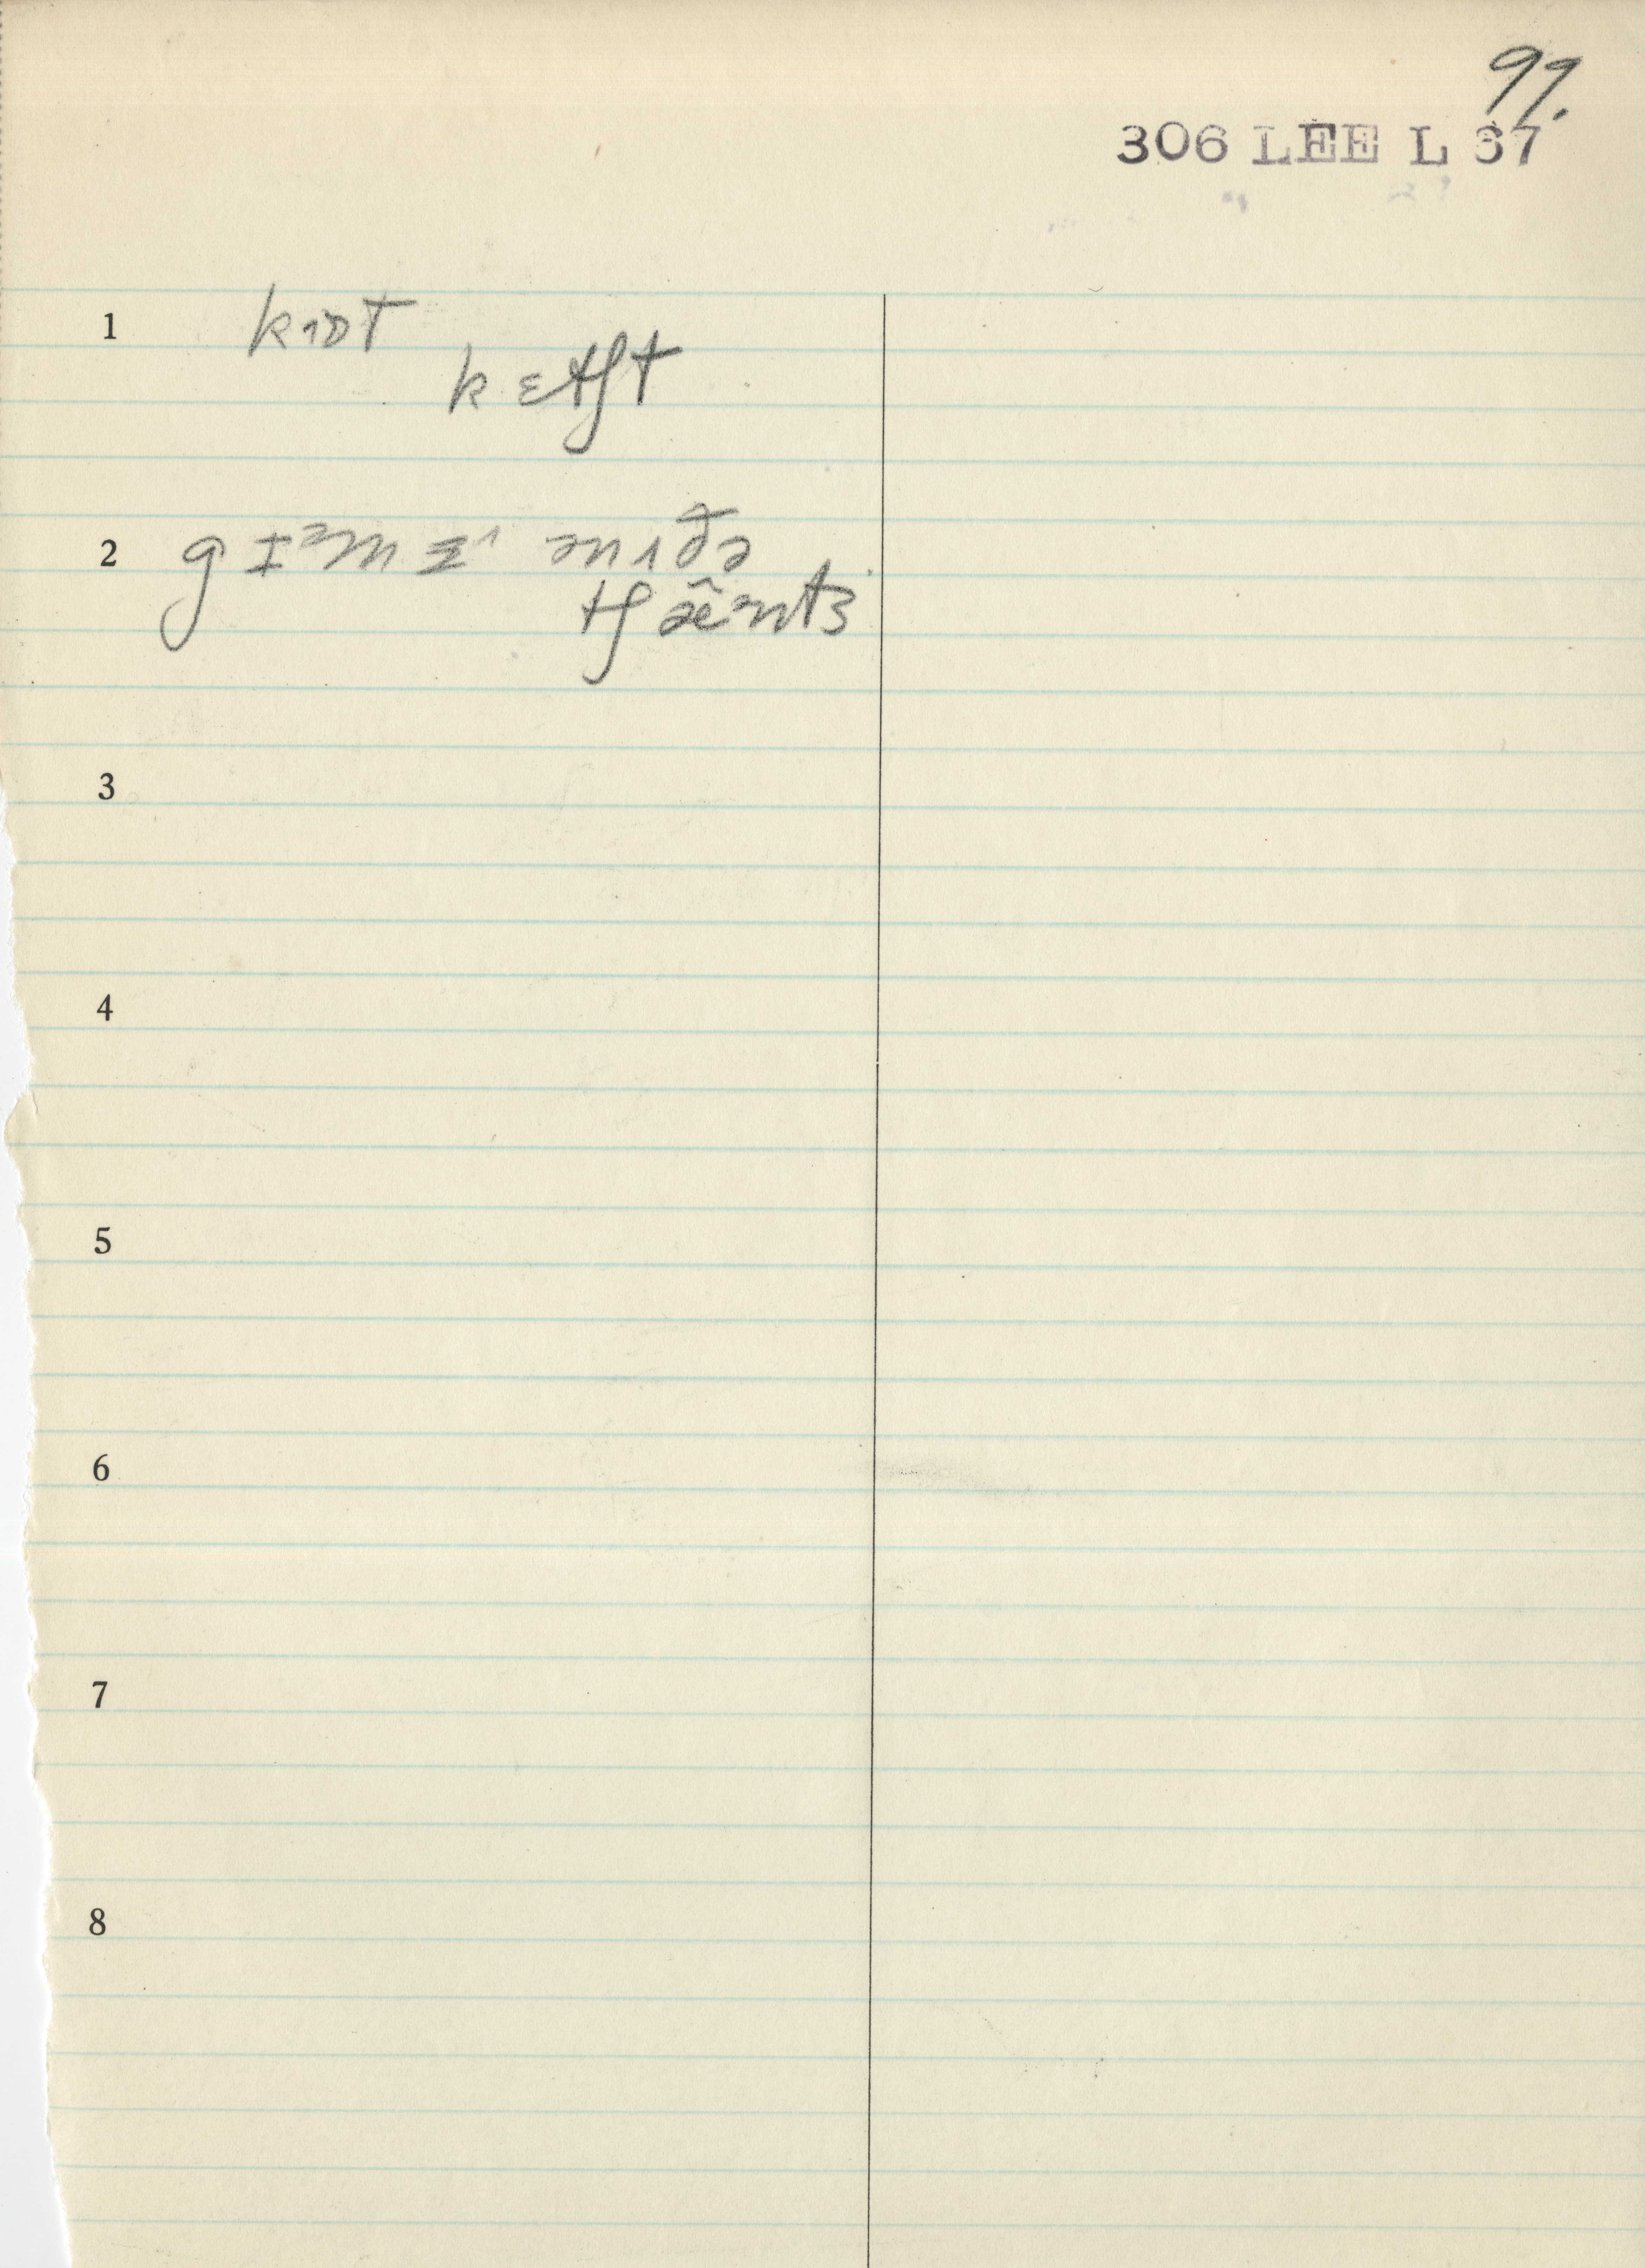 99.
306 LEE L 67
1 kɪɒt
kɛtʃt
2 gɪᵊmɪ^ ənʌðə
tʃæ̃ᵊnts
3
4
5
6
7
8